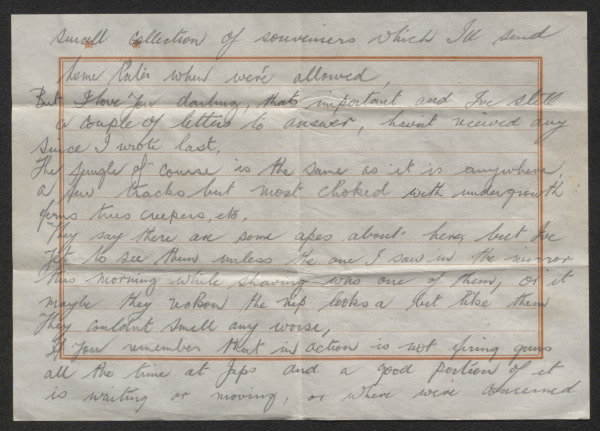 small collection of souveniers which I'll send
home later when we're allowed,
But I love you darling, thats important and I've still
a couple of letters to answer, havnt recieved any
since I wrote last.
The jungle of course is the same as it is anywhere,
a few tracks but most choked with undergrowth
ferns trees creepers, etc,
They say there are some apes about here, but I've
yet to see them unless the one I saw in the mirror
this morning while shaving was one of them, or it
maybe they reckon the nip looks a bit like them
They couldnt smell any worse,
If you remember that in action is not firing guns
all the time at Japs and a good portion of it
is waiting or moving, or where we're concerned